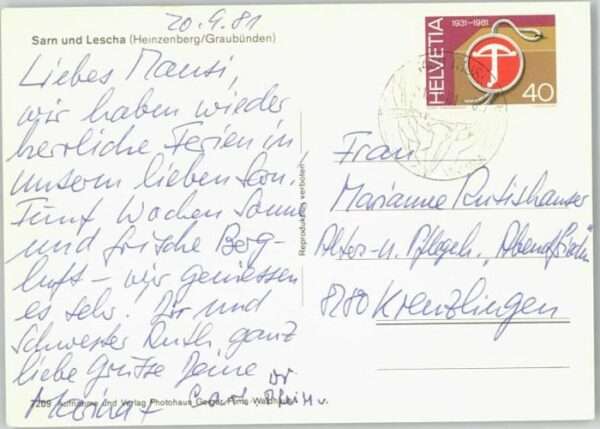 20.9.81
Sarn und Lescha (Heinzenberg/Graubünden)
Liebes Mausi,
wir haben wieder
herrliche Ferien in
unserm lieben Sarn.
Fünf Wochen Sonne
und frische Berg-
luft – wir geniessen
es sehr. Dir und
Schwester Ruth ganz
liebe Grüsse Deine
7209 Aufnahme und Verlag Photohaus Geiger, Flims-Waldhaus
Reproduktion verboten
HELVETIA
1931-1981
40
Frau
Marianne Rutishauser
Alters- u. Pflegeh. „Abendfrieden"
8280 Kreuzlingen